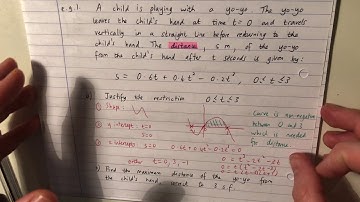 e.g.1 A child is playing with a yo-yo. The yo-yo
leaves the child's hand at time t=0 and travels
vertically in a straight line before returning to the
child's hand. The distance, s m, of the yo-yo
from the child's hand after t seconds is given by:
s = 0.6t + 0.4t² - 0.2t³, 0≤t≤3
a) Justify the restriction 0≤t≤3
① Shape:
② y intercept: t=0
s=0
③ x intercepts: s=0
0.6t + 0.4t² - 0.2t³ = 0
0 = t³ - 2t² - 3t
0 = t(t² - 2t - 3)
either t=0, 3, -1
Curve is non-negative
between 0 and 3
which is needed
for distance
b) Find the maximum distance of the yo-yo from
the child's hand, correct to 3 s.f.